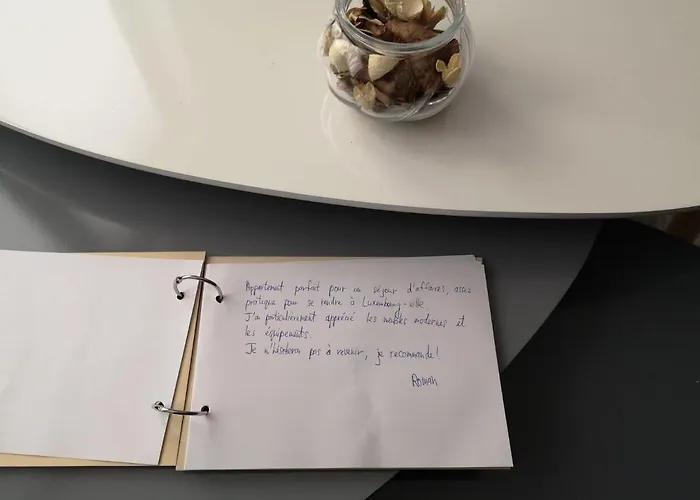 Appartement parfait pour un séjour d'affaires, assez
pratique pour se rendre à Luxembourg-ville.
J'ai particulièrement apprécié les meubles modernes et
les équipements.
Je n'hésiterai pas à revenir, je recommande!